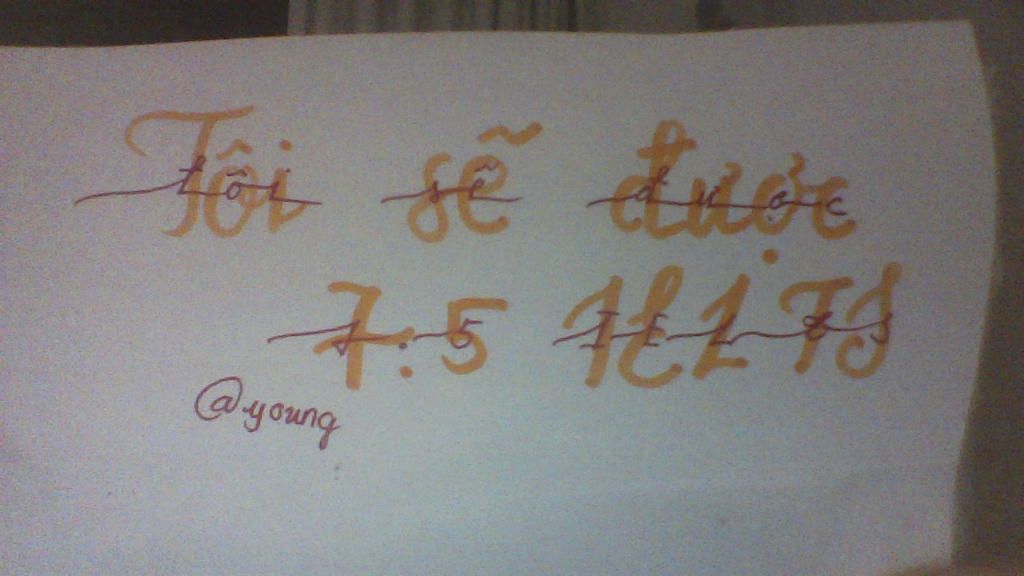 Tôi sẽ được
7.5 IELTS
@young